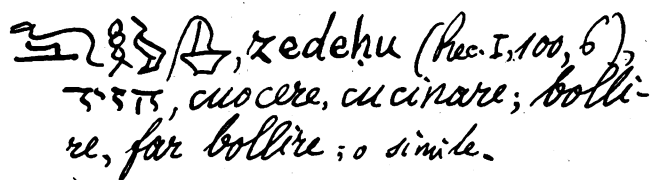 , zedeḥu (Rec. I, 100, 6),
, cuocere, cucinare; bolli-
re, far bollire; o simile.